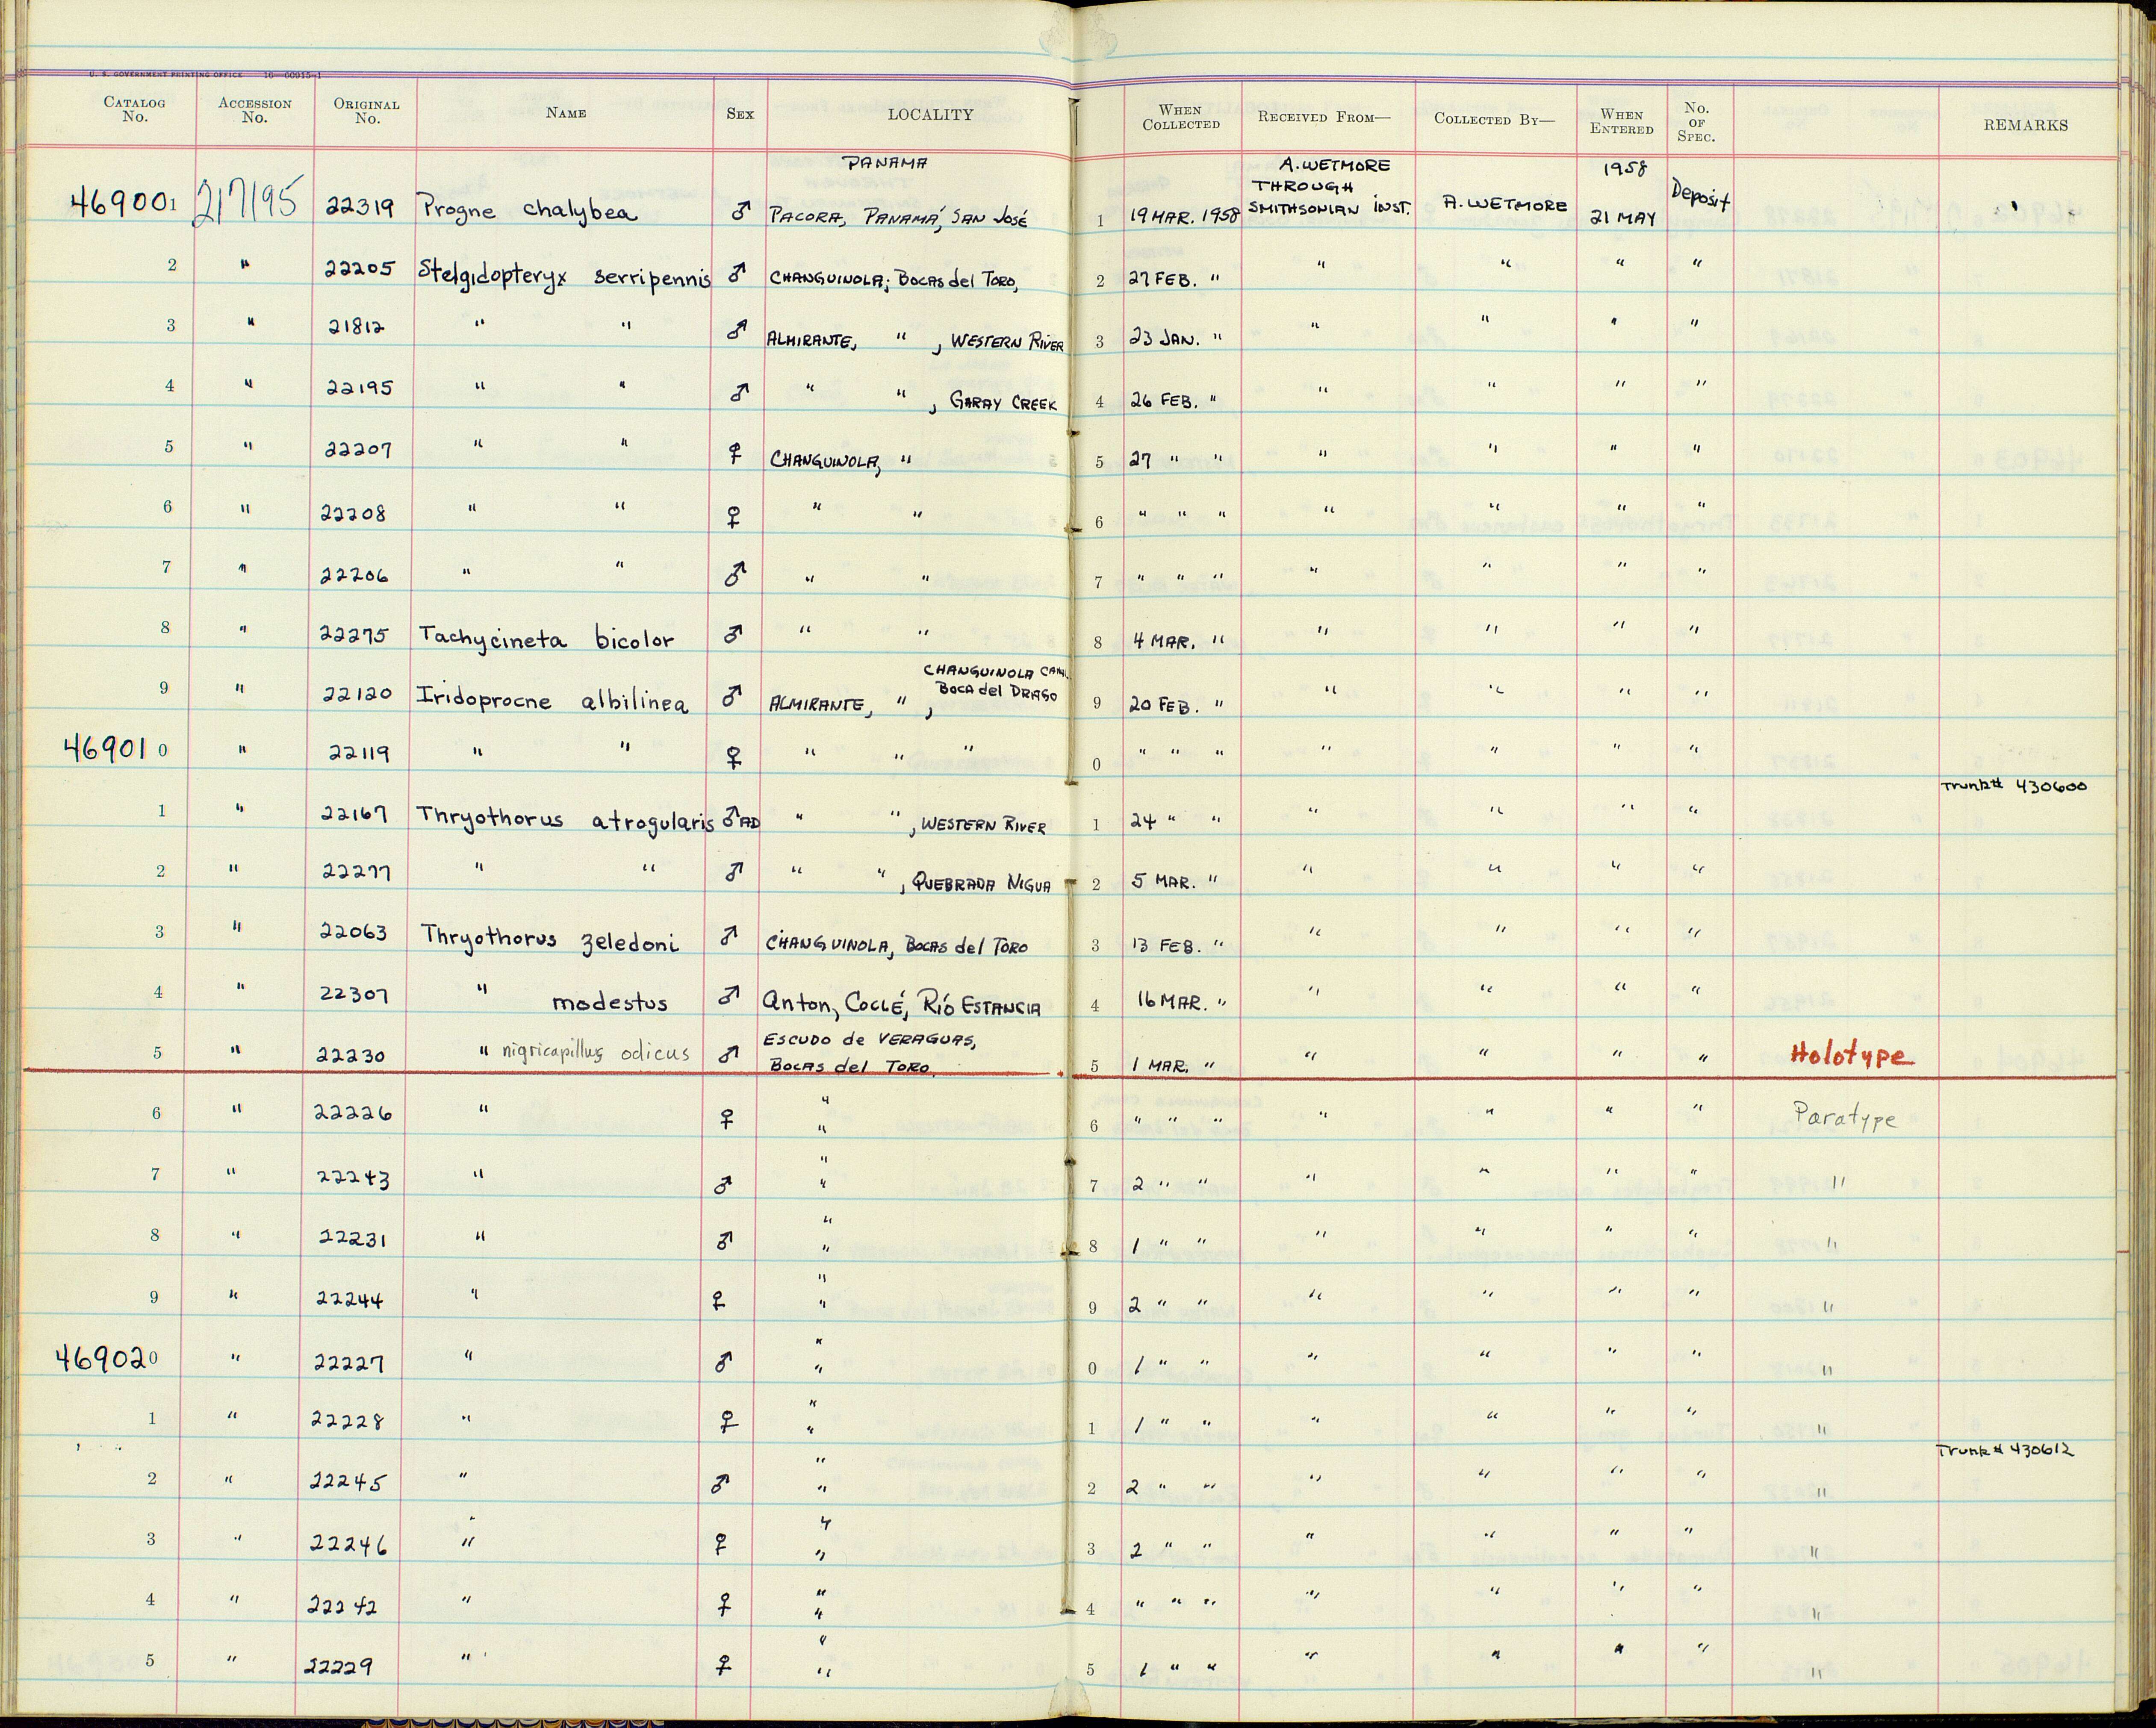 U. S. GOVERNMENT PRINTING OFFICE 16—60915-1
CATALOG No. ACCESSION No. ORIGINAL No. NAME SEX LOCALITY WHEN COLLECTED RECEIVED FROM— COLLECTED BY— WHEN ENTERED No. OF SPEC. REMARKS
PANAMA A. WETMORE THROUGH SMITHSONIAN INST. 1958
469001 217195 22319 Progne chalybea ♂ PACORA, PANAMÁ, SAN JOSÉ 1 19 MAR. 1958 A. WETMORE 21 MAY Deposit
2 " 22205 Stelgidopteryx serripennis ♂ CHANGUINOLA; BOCAS del TORO, 2 27 FEB. " " " " "
3 " 21812 " " ♂ ALMIRANTE, " , WESTERN RIVER 3 23 JAN. " " " " "
4 " 22195 " " ♂ " " , GARAY CREEK 4 26 FEB. " " " " "
5 " 22207 " " ♀ CHANGUINOLA, " 5 27 " " " " " "
6 " 22208 " " ♀ " " 6 " " " " " " "
7 " 22206 " " ♂ " " 7 " " " " " " "
8 " 22275 Tachycineta bicolor ♂ " " 8 4 MAR. " " " " "
9 " 22120 Iridoprocne albilinea ♂ ALMIRANTE, " , CHANGUINOLA CANAL Boca del DRAGO 9 20 FEB. " " " " "
469010 " 22119 " " ♀ " " " 0 " " " " " " "
Trunk # 430600
1 " 22167 Thryothorus atrogularis ♂ AD " " , WESTERN RIVER 1 24 " " " " " "
2 " 22277 " " ♂ " " , QUEBRADA NIGUA 2 5 MAR. " " " " "
3 " 22063 Thryothorus zeledoni ♂ CHANGUINOLA, BOCAS del TORO 3 13 FEB. " " " " "
4 " 22307 " modestus ♂ Anton, COCLÉ, RÍO ESTANCIA 4 16 MAR. " " " " "
5 " 22230 " nigricapillus odicus ♂ ESCUDO de VERAGUAS, BOCAS del TORO 5 1 MAR. " " " " " Holotype
6 " 22226 " ♀ " " 6 " " " " " " " Paratype
7 " 22243 " ♂ " " 7 2 " " " " " " "
8 " 22231 " ♂ " " 8 1 " " " " " " "
9 " 22244 " ♀ " " 9 2 " " " " " " "
469020 " 22227 " ♂ " " 0 1 " " " " " " "
1 " 22228 " ♀ " " 1 1 " " " " " " "
Trunk # 430612
2 " 22245 " ♂ " " 2 2 " " " " " " "
3 " 22246 " ♀ " " 3 2 " " " " " " "
4 " 22242 " ♀ " " 4 " " " " " " " "
5 " 22229 " ♀ " " 5 1 " " " " " " "